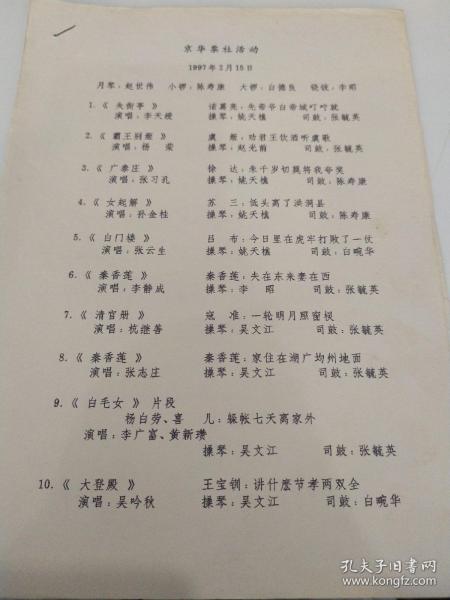 京华票社活动
1997年2月15日
月琴：赵世伟 小锣：陈寿康 大锣：白德良 铙钹：李昭
1.《 失街亭 》 诸葛亮：先帝爷白帝城叮咛就
演唱：李天绶 操琴：姚天樵 司鼓：张毓英
2.《 霸王别姬 》 虞 姬：劝君王饮酒听虞歌
演唱：杨 荣 操琴：赵光前 司鼓：张毓英
3.《 广泰庄 》 徐 达：朱千岁切莫将我夸奖
演唱：张习孔 操琴：姚天樵 司鼓：陈寿康
4.《 女起解 》 苏 三：低头离了洪洞县
演唱：孙金桂 操琴：姚天樵 司鼓：陈寿康
5.《 白门楼 》 吕 布：今日里在虎牢打败了一仗
演唱：张云生 操琴：姚天樵 司鼓：白畹华
6.《 秦香莲 》 秦香莲：夫在东来妻在西
演唱：李静成 操琴：李 昭 司鼓：张毓英
7.《 清官册 》 寇 准：一轮明月照窗棂
演唱：杭继善 操琴：吴文江 司鼓：张毓英
8.《 秦香莲 》 秦香莲：家住在湖广均州地面
演唱：张志庄 操琴：吴文江 司鼓：张毓英
9.《 白毛女 》 片段
杨白劳、喜 儿：躲帐七天离家外
演唱：李广富、黄新瓒
操琴：吴文江 司鼓：张毓英
10.《 大登殿 》 王宝钏：讲什麽节孝两双全
演唱：吴吟秋 操琴：吴文江 司鼓：白畹华
孔夫子旧书网
www.kongfz.com